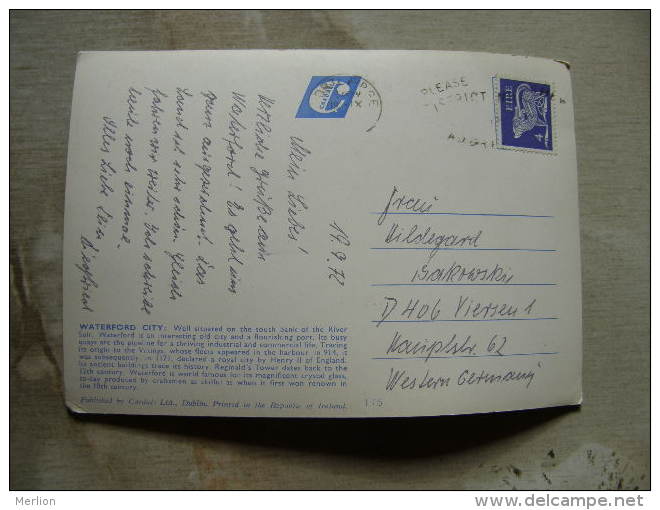 19.9.72
Mein Liebes!
Herzliche Grüße aus
Waterford! Es geht uns
ganz ausgezeichnet. Das
Land ist sehr schön. Gleich
fahren wir weiter. Ich schreibe
heute noch einmal.
Alles Liebe Dein
Siegfried
PLEASE
EIRE
4
Frau
Hildegard
Sakowski
D 406 Viersen 1
Hauptstr. 62
Western Germany
WATERFORD CITY: Well situated on the south bank of the River
Suir, Waterford is an interesting old city and a flourishing port. Its busy
quays are the pipeline for a thriving industrial and commercial life. Tracing
its origin to the Vikings, whose fleets appeared in the harbour in 914, it
was subsequently, in 1171, declared a royal city by Henry II of England.
Its ancient buildings trace its history. Reginald's Tower dates back to the
12th century. Waterford is world famous for its magnificent crystal glass,
to-day produced by craftsmen as skilful as when it first won renown in
the 18th century.
Published by Cardall Ltd., Dublin. Printed in the Republic of Ireland.
175
Merlion
www.delcampe.net